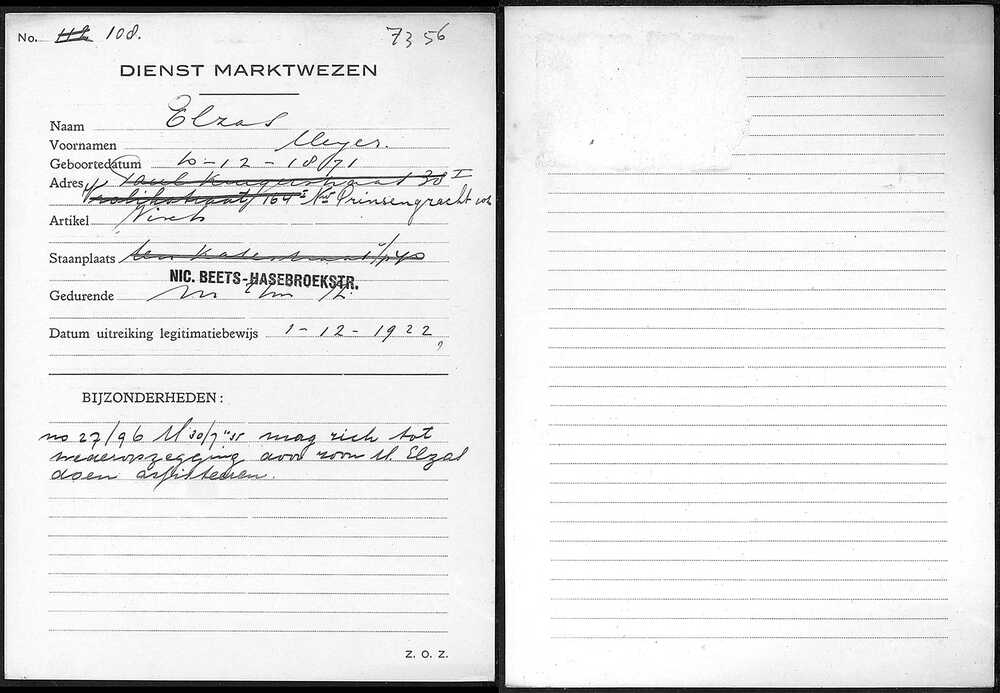 No. 108. 7356
DIENST MARKTWEZEN
Naam Elzas
Voornamen Meyer.
Geboortedatum 10-12-1871
Adres Paul Krugerstraat 30 I
Vrolikstraat 164 I Nwe Prinsengracht
Artikel Visch
Staanplaats ten Katestraat
NIC. BEETS-HASEBROEKSTR.
Gedurende m t/m
Datum uitreiking legitimatiebewijs 1-12-1922
BIJZONDERHEDEN:
no 27/96 M 30/7 '35 mag zich tot
wederopzegging door zoon M. Elzas
doen assisteeren.
Z. O. Z.